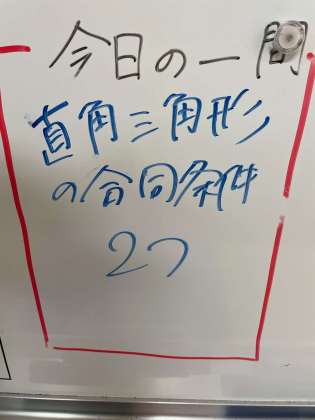 今日の一問
直角三角形
の合同条件
2つ